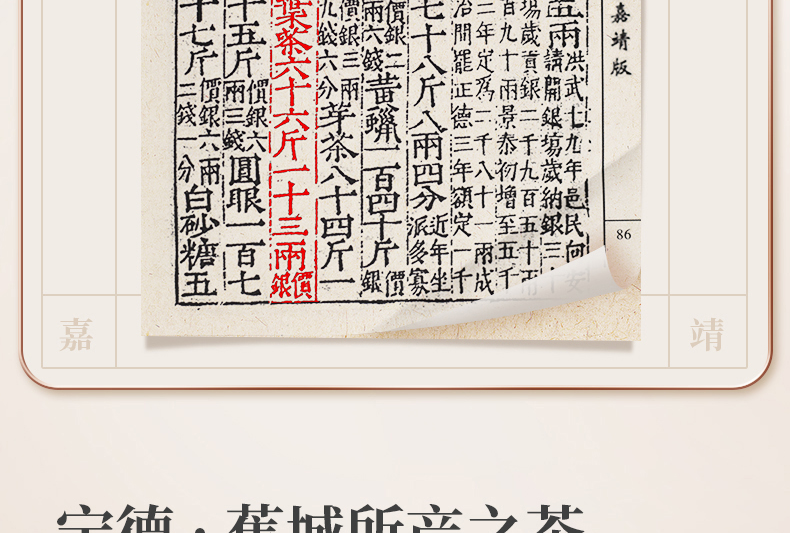 嘉靖版
洪武十九年邑民向安
請開銀場歲納銀三十
場歲貢銀二千九百五十兩
百九十兩景泰初增至五千
三年定為二千八十一兩成
冶間罷正德三年額定一千
七十八斤八兩四分
近年坐
派多寡
價銀二
兩六錢
黃蠟一百四十斤
價
銀
價銀三兩
九錢六分
芽茶八十四斤一
葉茶六十六斤一十三兩
價
銀
十五斤
價銀六
兩三錢
圓眼一百七
十七斤
價銀六兩
二錢一分
白砂糖五
86
嘉
靖
宁德·蕉城所产之茶